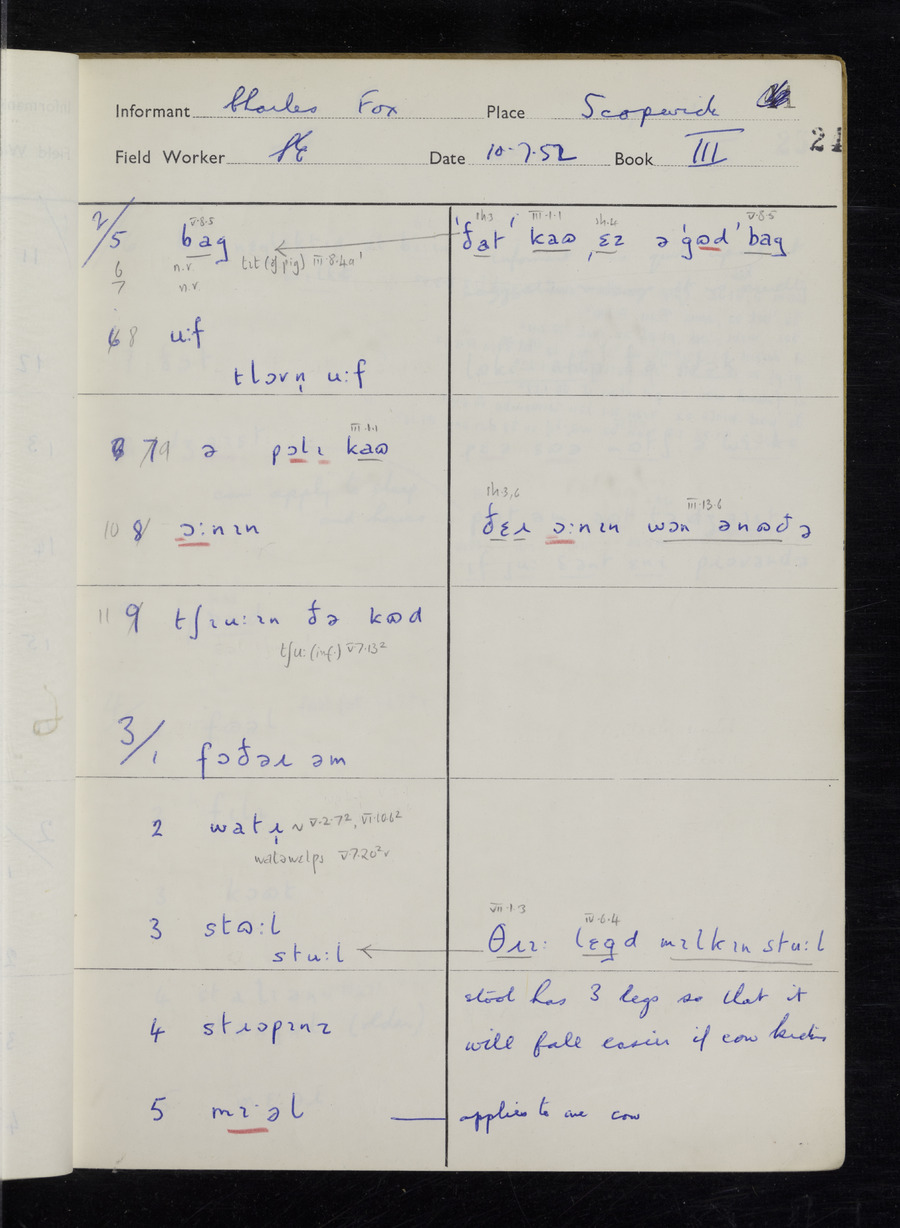 Informant Charles Fox Place Scopwick
21
Field Worker Date 10.7.52 Book III
2/5 bag V.8.5
tɪt (of pig) III.8.4a
'ðat' kaʊ ɛz ə 'gʊd' bag
th.3 III.1.1 V.8.5
6 n.r
7 n.r
8 u:f
tlɔvn̩ u:f
9 ə pɔlɪ kaʊ
III.1.1
10 8 ɔ:nɪn
ðɛɪ ɔ:nɪn wɔn ənʊðə
th.3,6 III.13.6
11 9 tʃɪu:ɪn ðə kʊd
tʃu: (inf.) V.7.13²
3/1 fɔðəɹ əm
2 watɹ̩ ~ V.2.7², VI.10.6²
watəwɛlps V.7.20²
3 stʊ:l
stu:l
θɹɪ: lɛgd mɪlkɪn stu:l
VII.1.3 IV.6.4
4 stɹɔpɪnz
stool has 3 legs so that it
will fall easier if cow kicks
5 mɪ·əl
applies to one cow